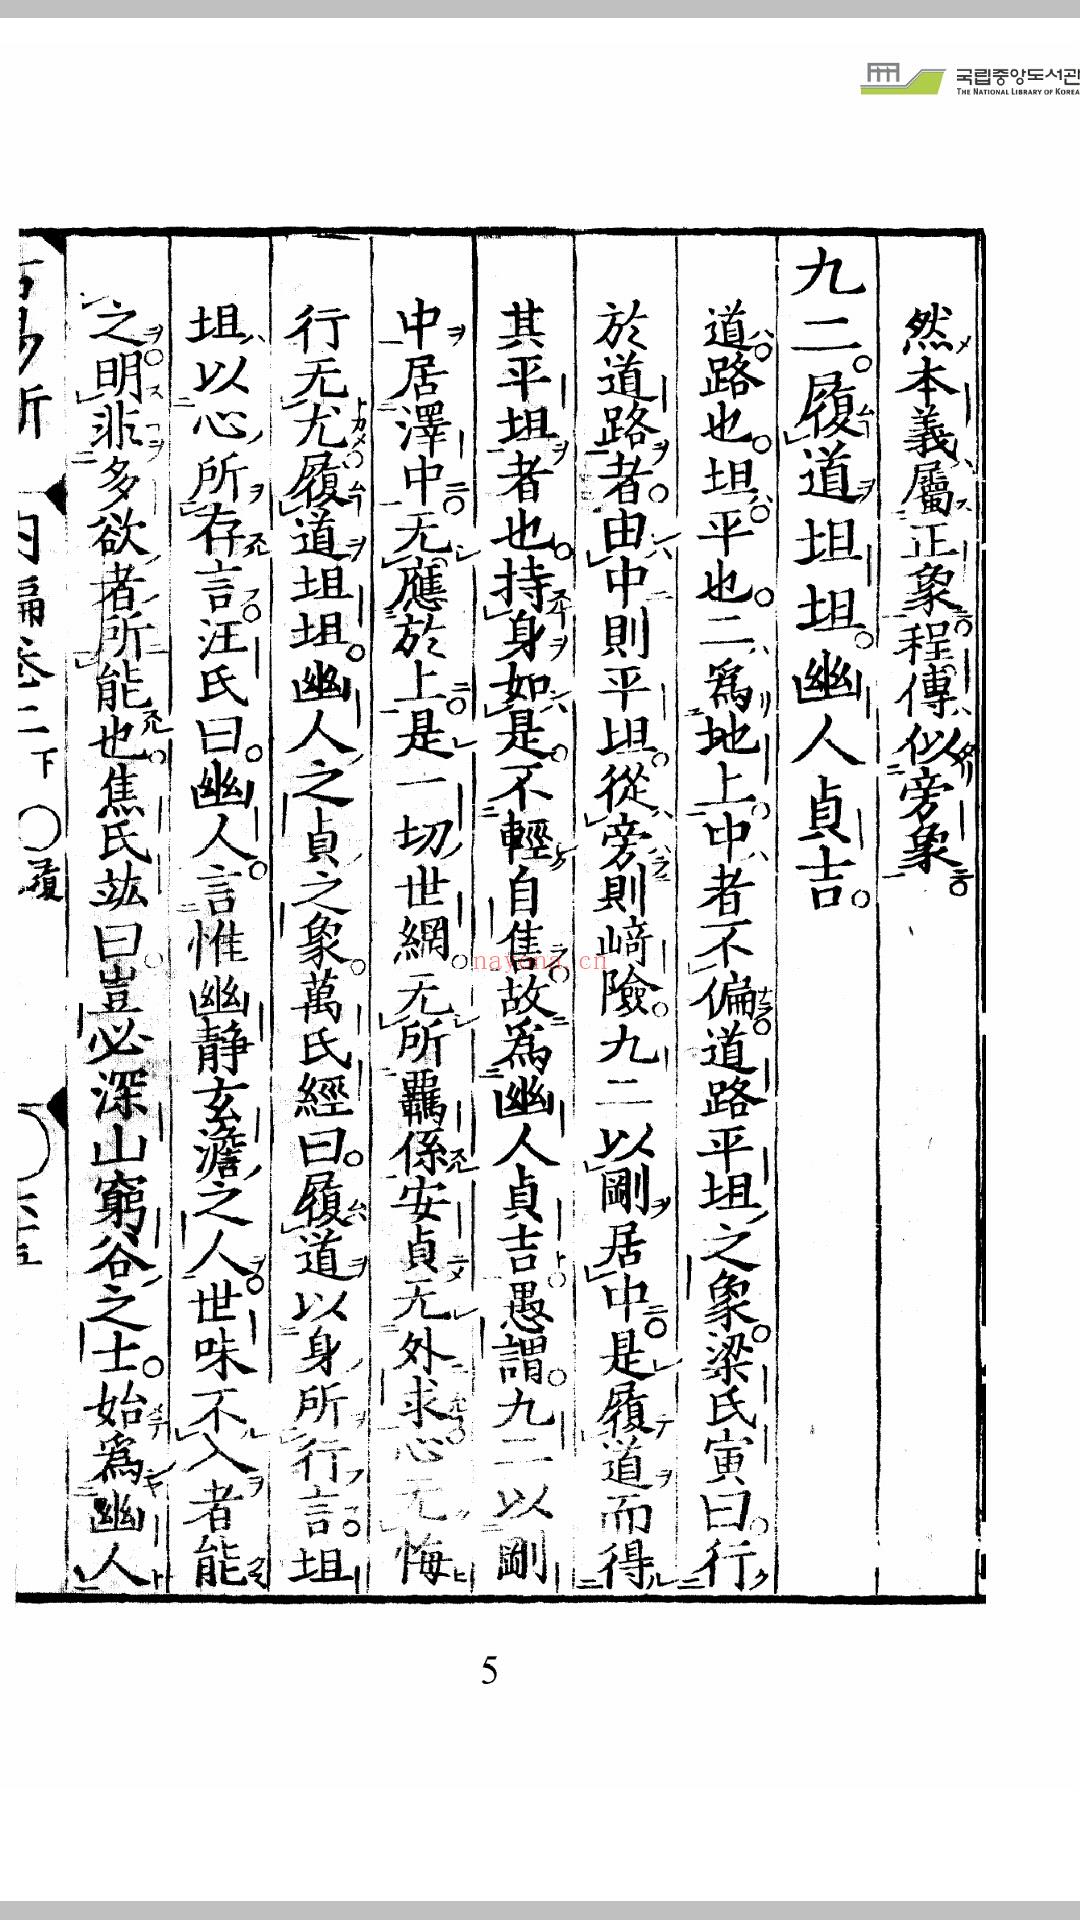 국립중앙도서관
THE NATIONAL LIBRARY OF KOREA
然本義屬正象程傳似旁象
九二履道坦坦幽人貞吉
道路也坦平也二爲地上中者不偏道路平坦之象梁氏寅曰行
於道路者由中則平坦從旁則崎險九二以剛居中是履道而得
其平坦者也持身如是不輕自售故爲幽人貞吉愚謂九二以剛
中居澤中无應於上是一切世網无所羈係安貞无外求心无悔
行无尤履道坦坦幽人之貞之象萬氏經曰履道以身所行言坦
坦以心所存言汪氏曰幽人言惟幽靜玄澹之人世味不入者能
之明非多欲者所能也焦氏竑曰豈必深山窮谷之士始爲幽人
內編卷二下 履
nayona.cn
5